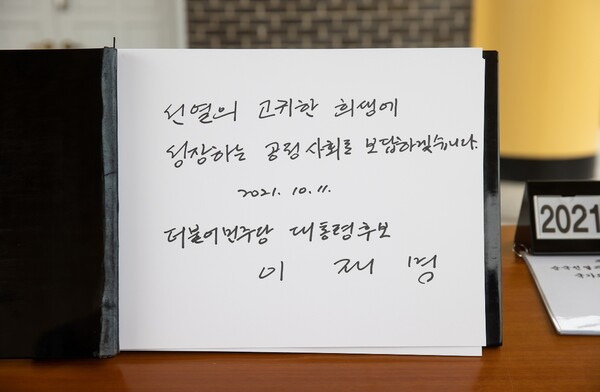 선열의 고귀한 희생에
성장하는 공정사회로 보답하겠습니다.
2021. 10. 11.
더불어민주당 대통령후보
이 재 명
2021